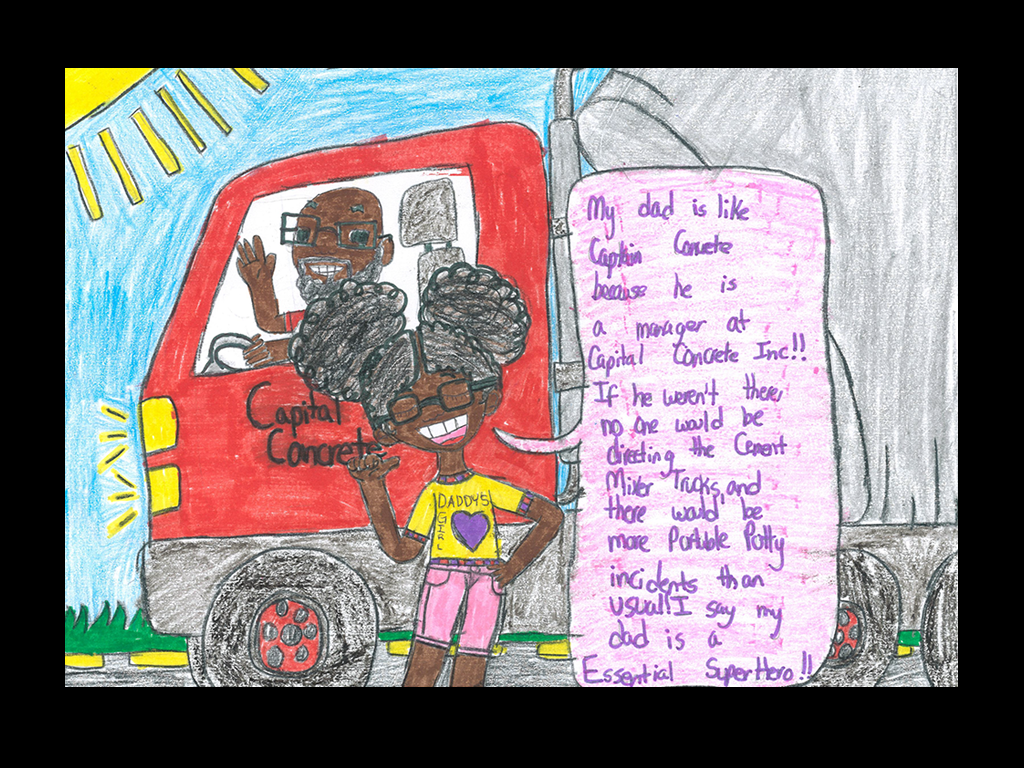 Capital
Concrete
DADDYS
GIRL
My dad is like
Captain Concrete
because he is
a manager at
Capital Concrete Inc!!
If he weren't there,
no one would be
directing the Cement
Mixer Trucks, and
there would be
more Portable Potty
incidents than
usual! I say my
dad is a
Essential SuperHero!!